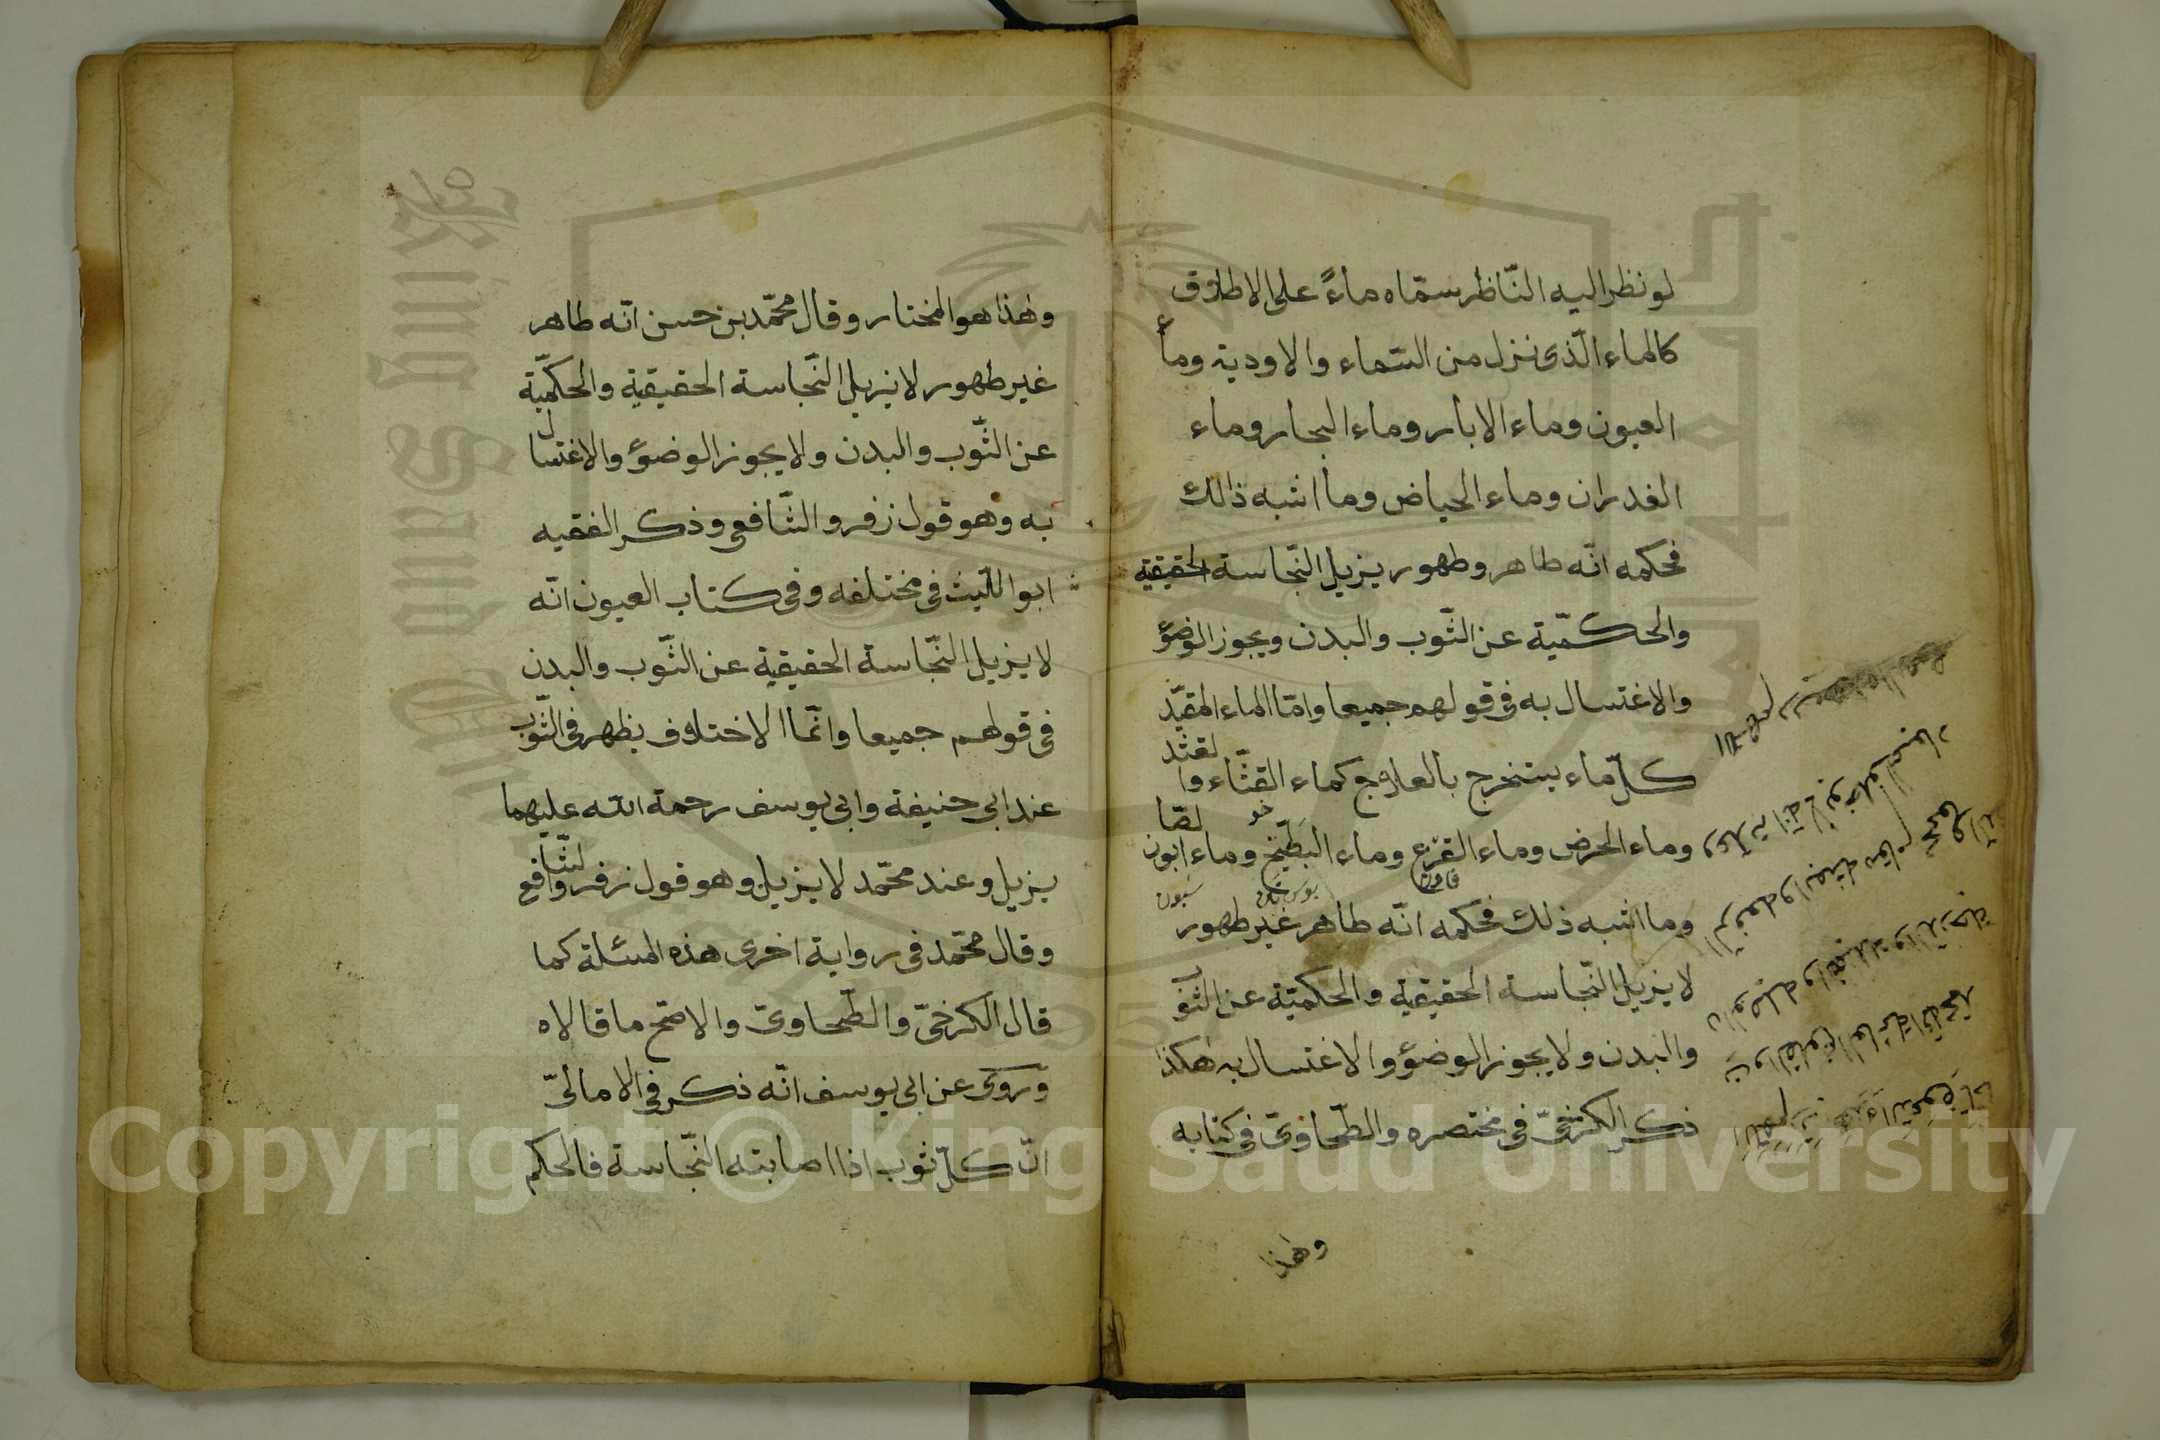 لو نظر اليه النّاظر سمّاه ماءً على الاطلاق
كالماء الّذى نزل من السّماء والاودية وماء
العيون وماء الابار وماء البحار وماء
الغدران وماء الحياض وما اشبه ذالك
فحكمه انّه طاهر وطهور يزيل النّجاسة الحقيقية
والحكميّة عن الثّوب والبدن ويجوز الوضؤ
والاغتسال به فى قولهم جميعا وامّا الماء المقيّد
كلّ ماء يستخرج بالعلاج كماء القثّاء والقثد
وماء الحرض وماء القرع وماء البطّيخ وماء الصّابون
قاون
صبون
وما اشبه ذلك فحكمه انّه طاهر غير طهور
لا يزيل النّجاسة الحقيقية والحكميّة عن الثّوب
والبدن ولا يجوز الوضؤ والاغتسال به هكذا
ذكر الكرخىّ فى مختصره والطّحاوىّ فى كتابه
وهذا
وهذا هو المختار وقال محمّد بن حسن انّه طاهر
غير طهور لا يزيل النّجاسة الحقيقية والحكميّة
عن الثّوب والبدن ولا يجوز الوضؤ والاغتسال
به وهو قول زفر والشّافعى وذكر الفقيه
ابو اللّيث فى مختلفه وفى كتاب العيون انّه
لا يزيل النّجاسة الحقيقية عن الثّوب والبدن
فى قولهم جميعا وانّما الاختلاف يظهر فى الثّوب
عند ابى حنيفة وابى يوسف رحمة الله عليهما
يزيل وعند محمّد لا يزيل وهو قول زفر والشّافعى
وقال محمّد فى رواية اخرى هذه المسئلة كما
قال الكرخىّ والطّحاوىّ والاصّح ما قالاه
وروى عن ابى يوسف انّه ذكر فى الامالىّ
انّ كلّ ثوب اذا اصابته النّجاسة فالحكم
King Saud University
جامعة الملك سعود
1957
Copyright © King Saud University